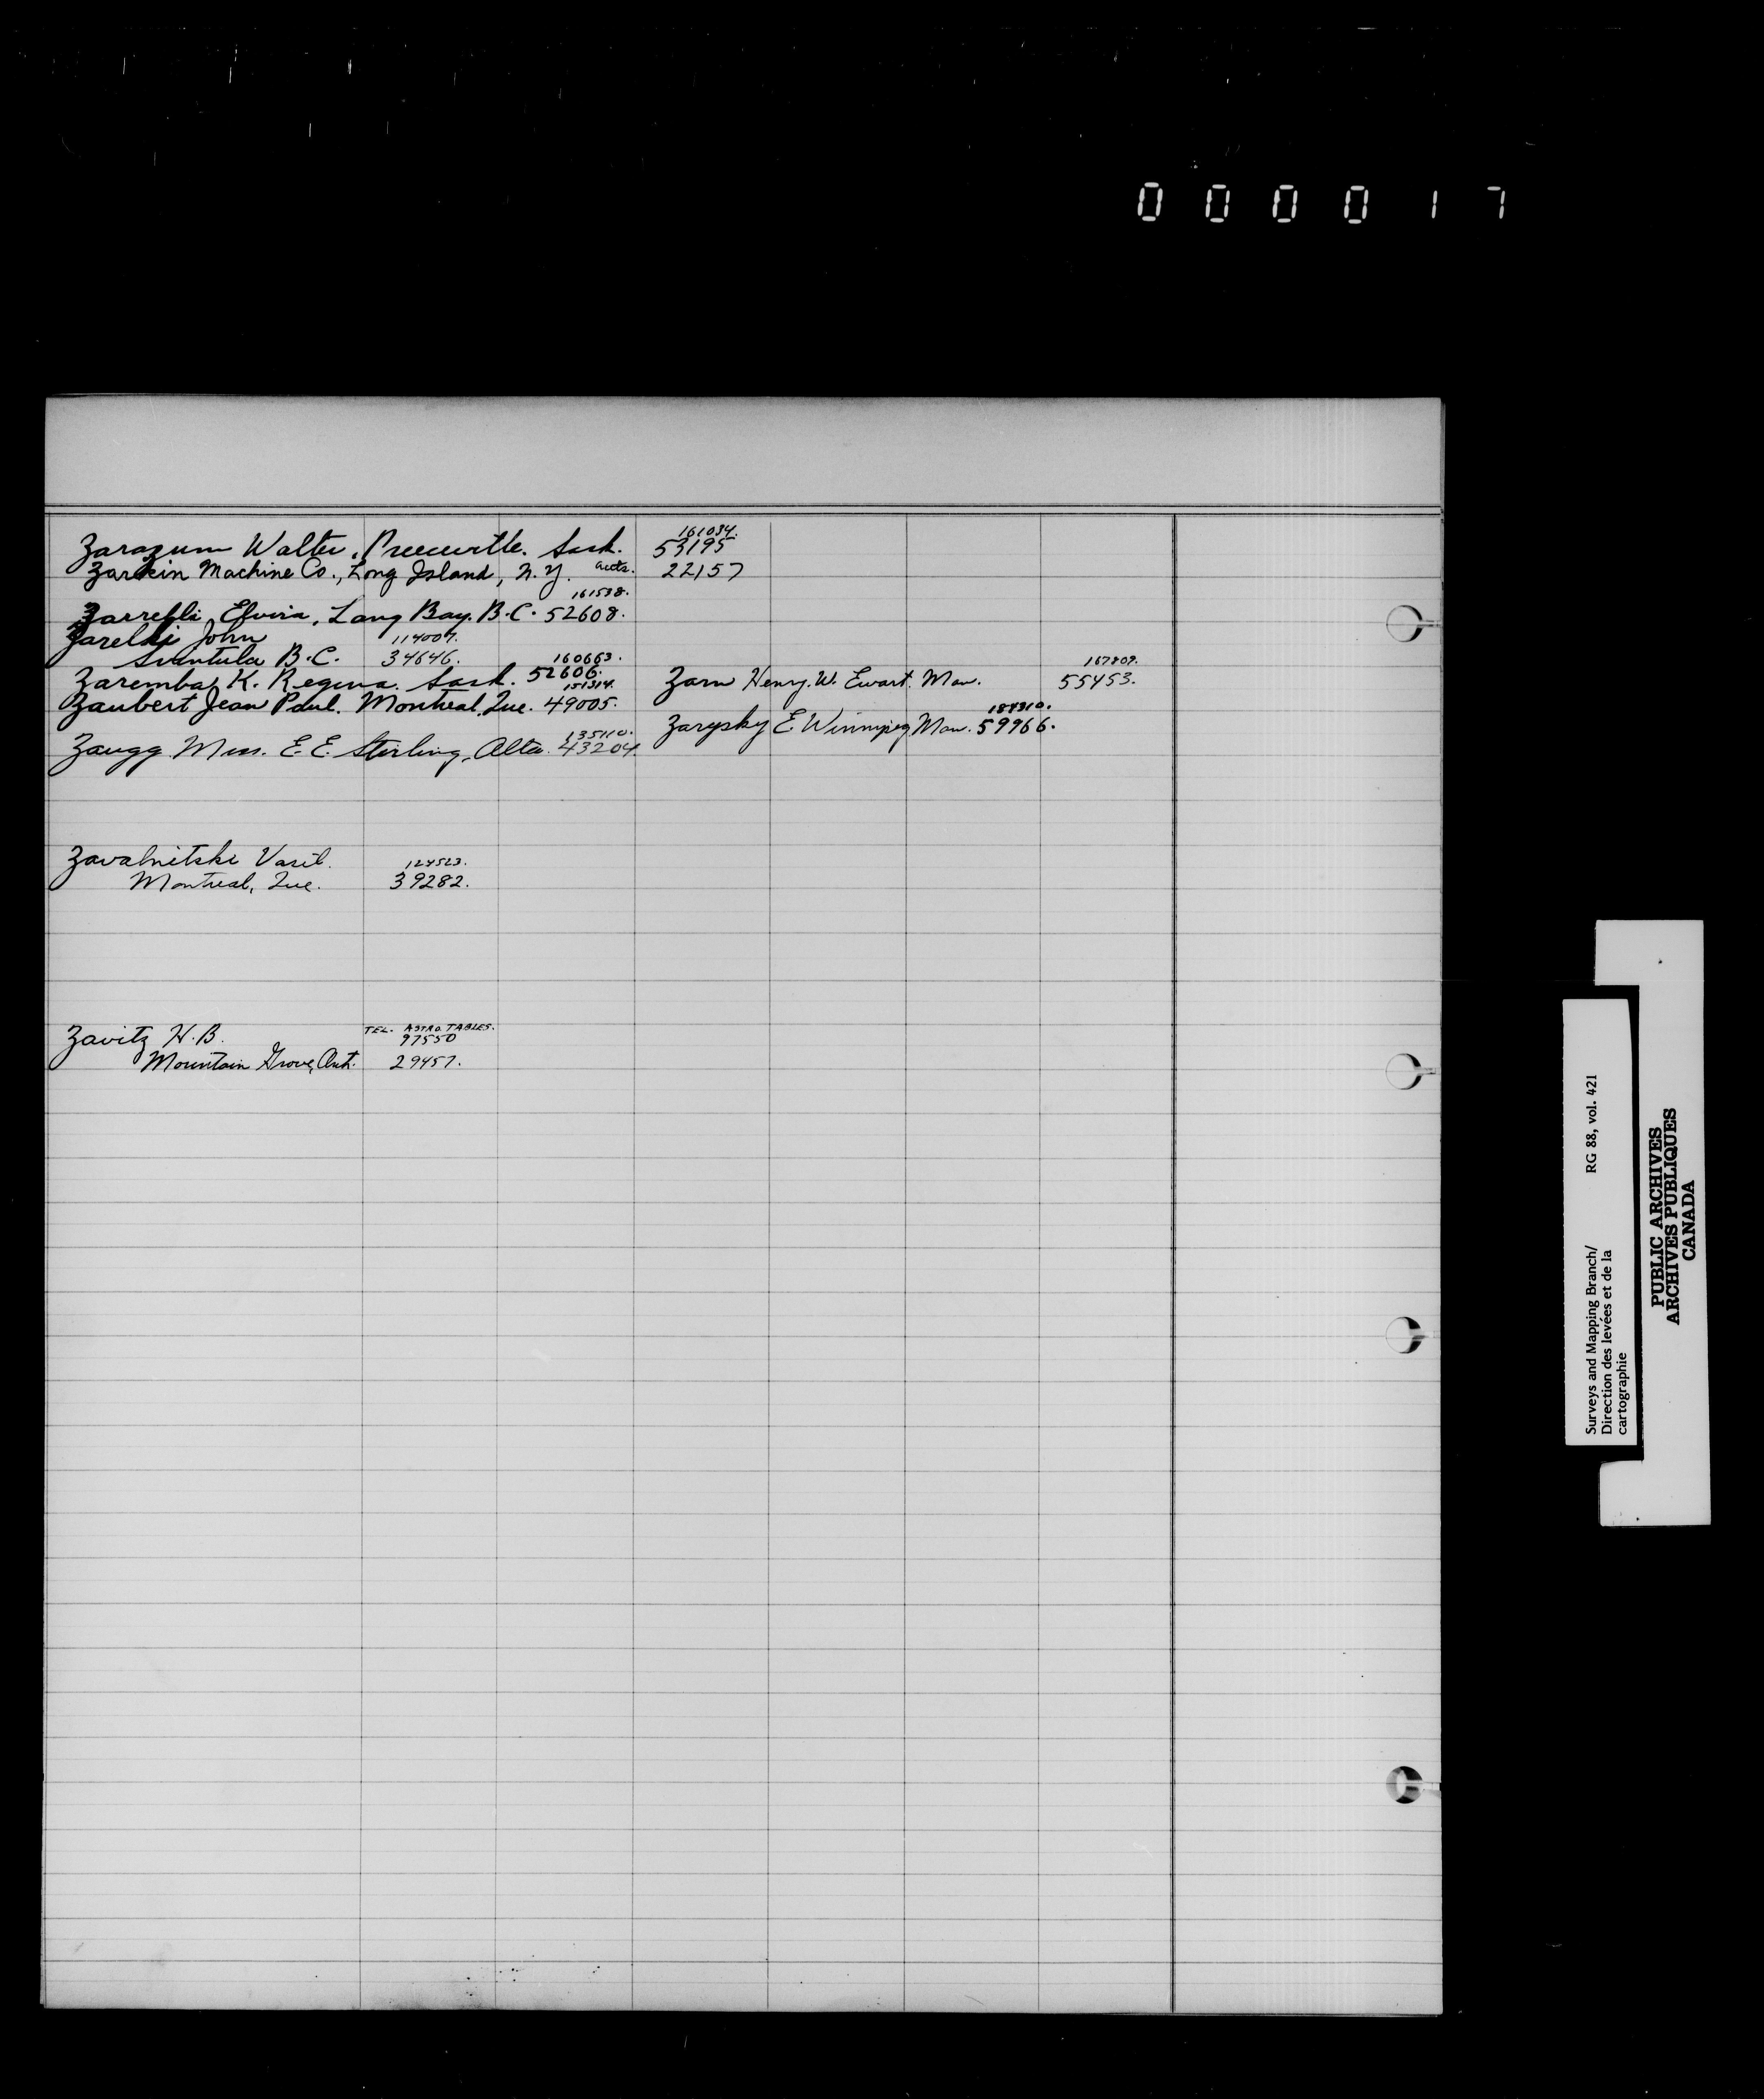 000017
161034.
Zarazum Walter. Preeceville. Sask. 53195
Zarkin Machine Co., Long Island, N.Y. accts. 22157
161538.
Zarrelli Elvira, Lang Bay. B.C. 52608.
Zarelli John 114007.
B.C. 34646.
160663.
Zaremba, K. Regina. Sask. 52606.
151314.
Zaubert Jean Paul. Montreal, Que. 49005.
135110.
Zaugg Mrs. E. E. Sterling, Alta. 43204.
167809.
Zarn Henry. W. Ewart. Man. 55453.
184310.
Zarysky E. Winnipeg Man. 59966.
Zavalnitski Vasil. 124523.
Montreal, Que. 39282.
TEL. ASTRO. TABLES.
Zavitz H.B. 97550
Mountain Grove, Ont. 29457.
Surveys and Mapping Branch/ RG 88, vol. 421
Direction des levées et de la
cartographie
PUBLIC ARCHIVES
ARCHIVES PUBLIQUES
CANADA